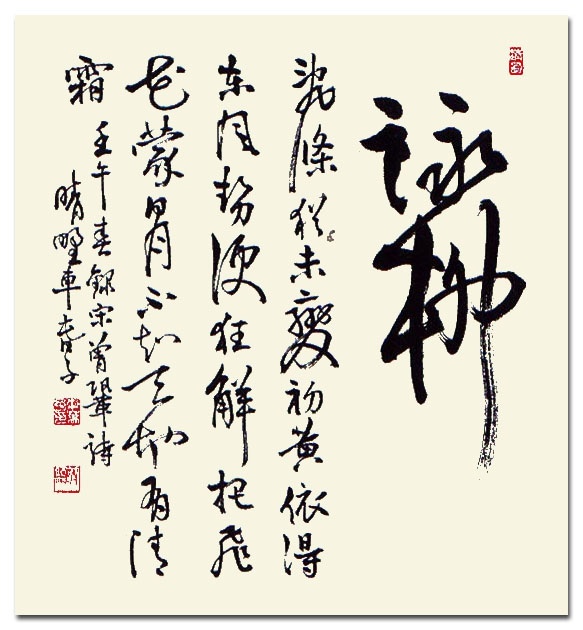 詠柳
亂條猶未變初黄依得
东風势便狂解把飛
花蒙日月不知天地有清
霜 壬午春録宋曾鞏詩
晴野車